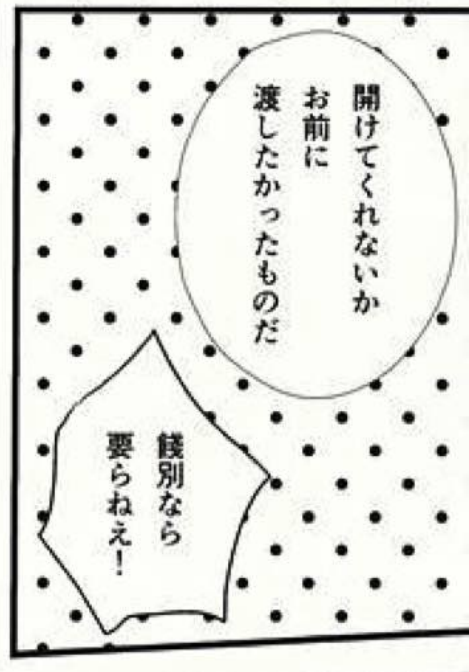 開けてくれないか
お前に
渡したかったものだ
餞別なら
要らねえ！